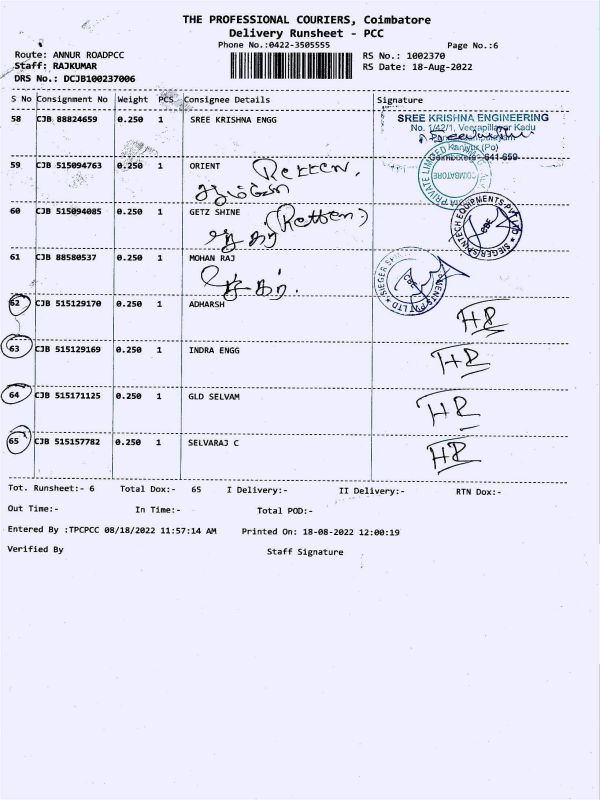 THE PROFESSIONAL COURIERS, Coimbatore
Delivery Runsheet - PCC
Phone No.:0422-3505555
Page No.:6
Route: ANNUR ROADPCC
RS No.: 1002370
Staff: RAJKUMAR
RS Date: 18-Aug-2022
DRS No.: DCJB100237006
S No Consignment No Weight PCS Consignee Details Signature
58 CJB 88824659 0.250 1 SREE KRISHNA ENGG
SREE KRISHNA ENGINEERING
No. 1/42/1, Veerapillayar Kadu
Kanuvur (Po)
Coimbatore - 641 659
59 CJB 515094763 0.250 1 ORIENT
PRIVATE LIMITED
COIMBATORE
60 CJB 515094085 0.250 1 GETZ SHINE
SIEGER SPINTECH EQUIPMENTS PVT LTD
CBE
61 CJB 88580537 0.250 1 MOHAN RAJ
62 CJB 515129170 0.250 1 ADHARSH
63 CJB 515129169 0.250 1 INDRA ENGG
64 CJB 515171125 0.250 1 GLD SELVAM
65 CJB 515157782 0.250 1 SELVARAJ C
Tot. Runsheet:- 6 Total Dox:- 65 I Delivery:- II Delivery:- RTN Dox:-
Out Time:- In Time:- Total POD:-
Entered By :TPCPCC 08/18/2022 11:57:14 AM Printed On: 18-08-2022 12:00:19
Verified By Staff Signature